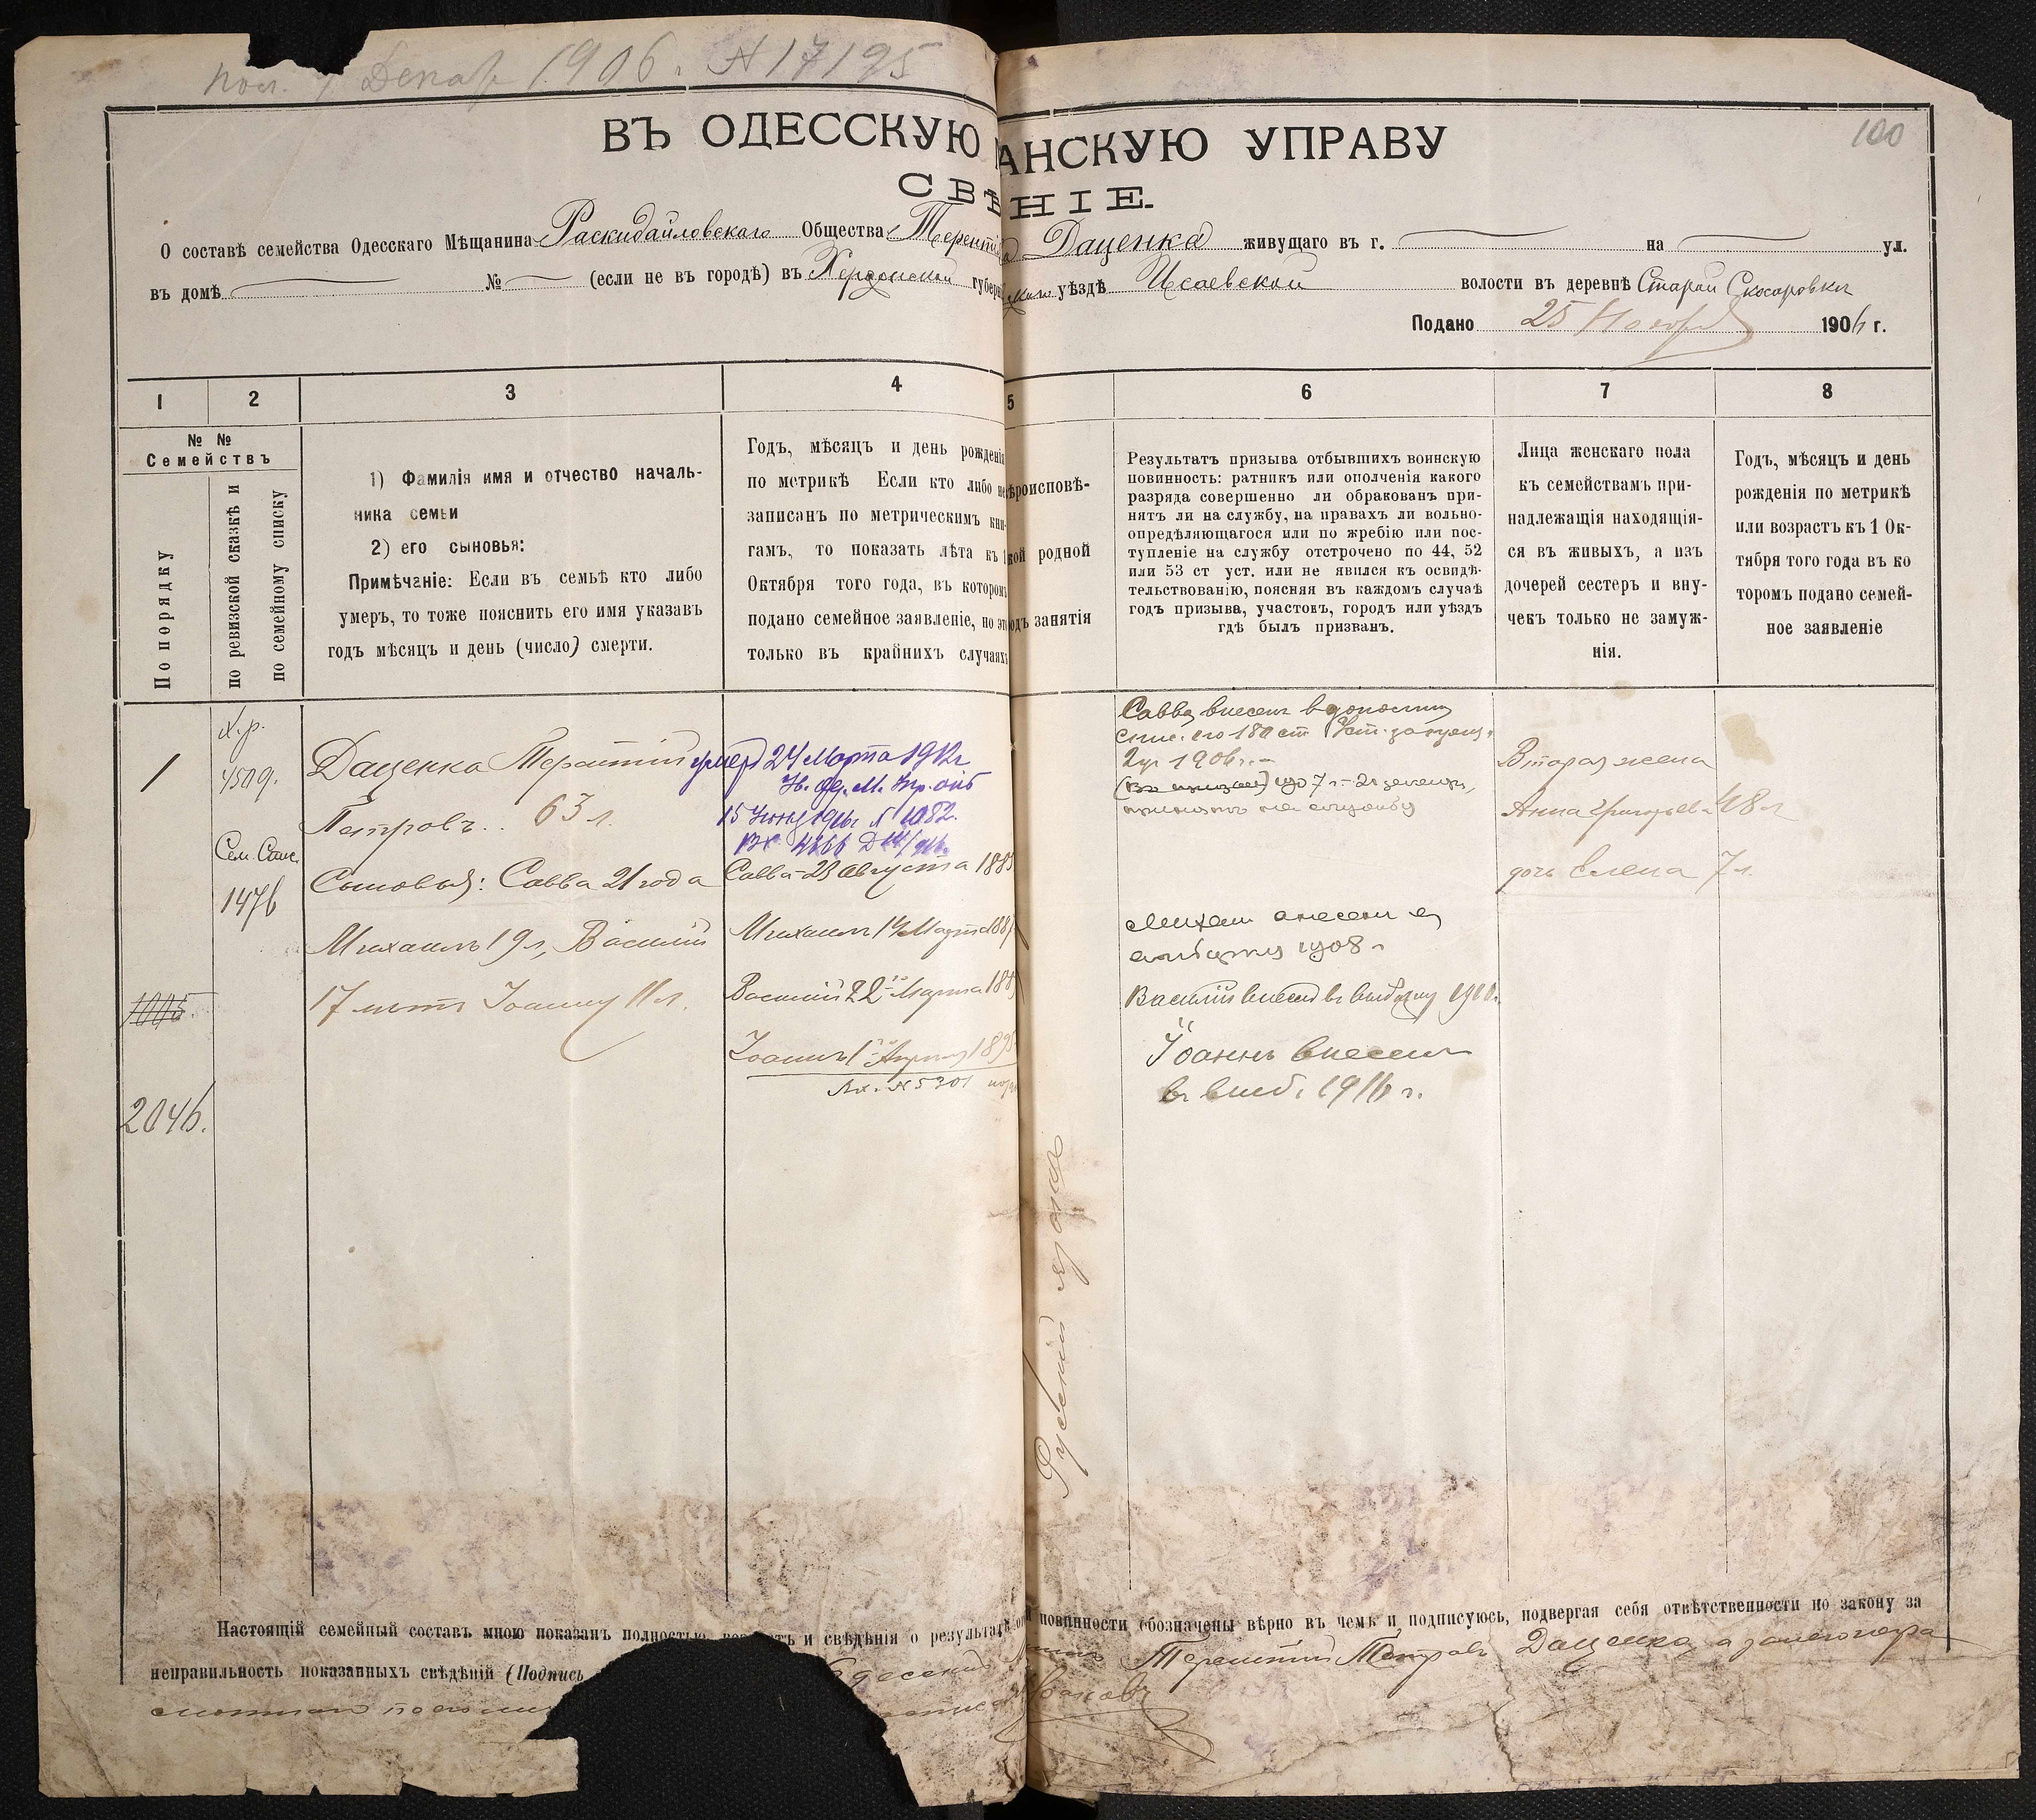 пол. 7 Декабр 1906 г. № 17195
100
ВЪ ОДЕССКУЮ АНСКУЮ УПРАВУ
СВѢ НІЕ.
О составѣ семейства Одесскаго Мѣщанина Раскидайловскаго Общества Терентія Даценка живущаго въ г. на ул.
въ домѣ № (если не въ городѣ) въ Херсонской губерн уѣздѣ Исаевской волости въ деревнѣ Старой Скосаровки
Подано 25 Ноября 1906 г.
1 2 3 4 5 6 7 8
№ №
Семействъ
По порядку
по ревизской сказкѣ и
по семейному списку
1) Фамилія имя и отчество началь-
ника семьи
2) его сыновья:
Примѣчаніе: Если въ семьѣ кто либо
умеръ, то тоже пояснить его имя указавъ
годъ мѣсяцъ и день (число) смерти.
Годъ, мѣсяцъ и день рожденія
по метрикѣ Если кто либо не
записанъ по метрическимъ кни-
гамъ, то показать лѣта къ 1
Октября того года, въ которомъ
подано семейное заявленіе, но это
только въ крайнихъ случаяхъ
ѣроисповѣ-
кой родной
одъ занятія
Результатъ призыва отбывшихъ воинскую
повинность: ратникъ или ополченія какого
разряда совершенно ли обракованъ при-
нятъ ли на службу, на правахъ ли вольно-
опредѣляющагося или по жребію или пос-
тупленіе на службу отстрочено по 44, 52
или 53 ст уст. или не явился къ освидѣ-
тельствованію, поясняя въ каждомъ случаѣ
годъ призыва, участокъ, городъ или уѣздъ
гдѣ былъ призванъ.
Лица женскаго пола
къ семействамъ при-
надлежащія находящія-
ся въ живыхъ, а изъ
дочерей сестеръ и вну-
чекъ только не замуж-
нія.
Годъ, мѣсяцъ и день
рожденія по метрикѣ
или возрастъ къ 1 Ок-
тября того года въ ко
торомъ подано семей-
ное заявленіе
1
Х. р.
4509.
Сем. Спис.
1476
1005
2046.
Даценко Терентій
Петровъ.. 63 л.
Сыновья: Савва 21 года
Михаилъ 19 л, Василій
17 летъ Іоанну 11 л.
умеръ 24 Марта 1912 г
15 Іюня 1916 г № 1082.
Вх 4666
Савва 23 Августа 188
Михаилъ 14 Марта 188
Василій 22 Марта 18
Іоаннъ 1 Апреля 189
Вх. № 5301
Русскій языкъ
Савва внесенъ в дополнит
спис. по 180 ст Уст.
1906 г. -
Михаил внесенъ в
1908 г
Василій внесен въ выборку 1910 г.
Іоаннъ внесенъ
въ выб. 1916 г.
Вторая жена
Анна Григорьева 48 л
дочь Елена 7 л.
Настоящій семейный составъ мною показанъ полностью и свѣдѣнія о результат повинности обозначены вѣрно въ чемъ и подписуюсь, подвергая себя отвѣтственности по закону за
неправильность показанныхъ свѣдѣній (Подпись Одесскій Терентій Петровъ Даценко, а за неграм